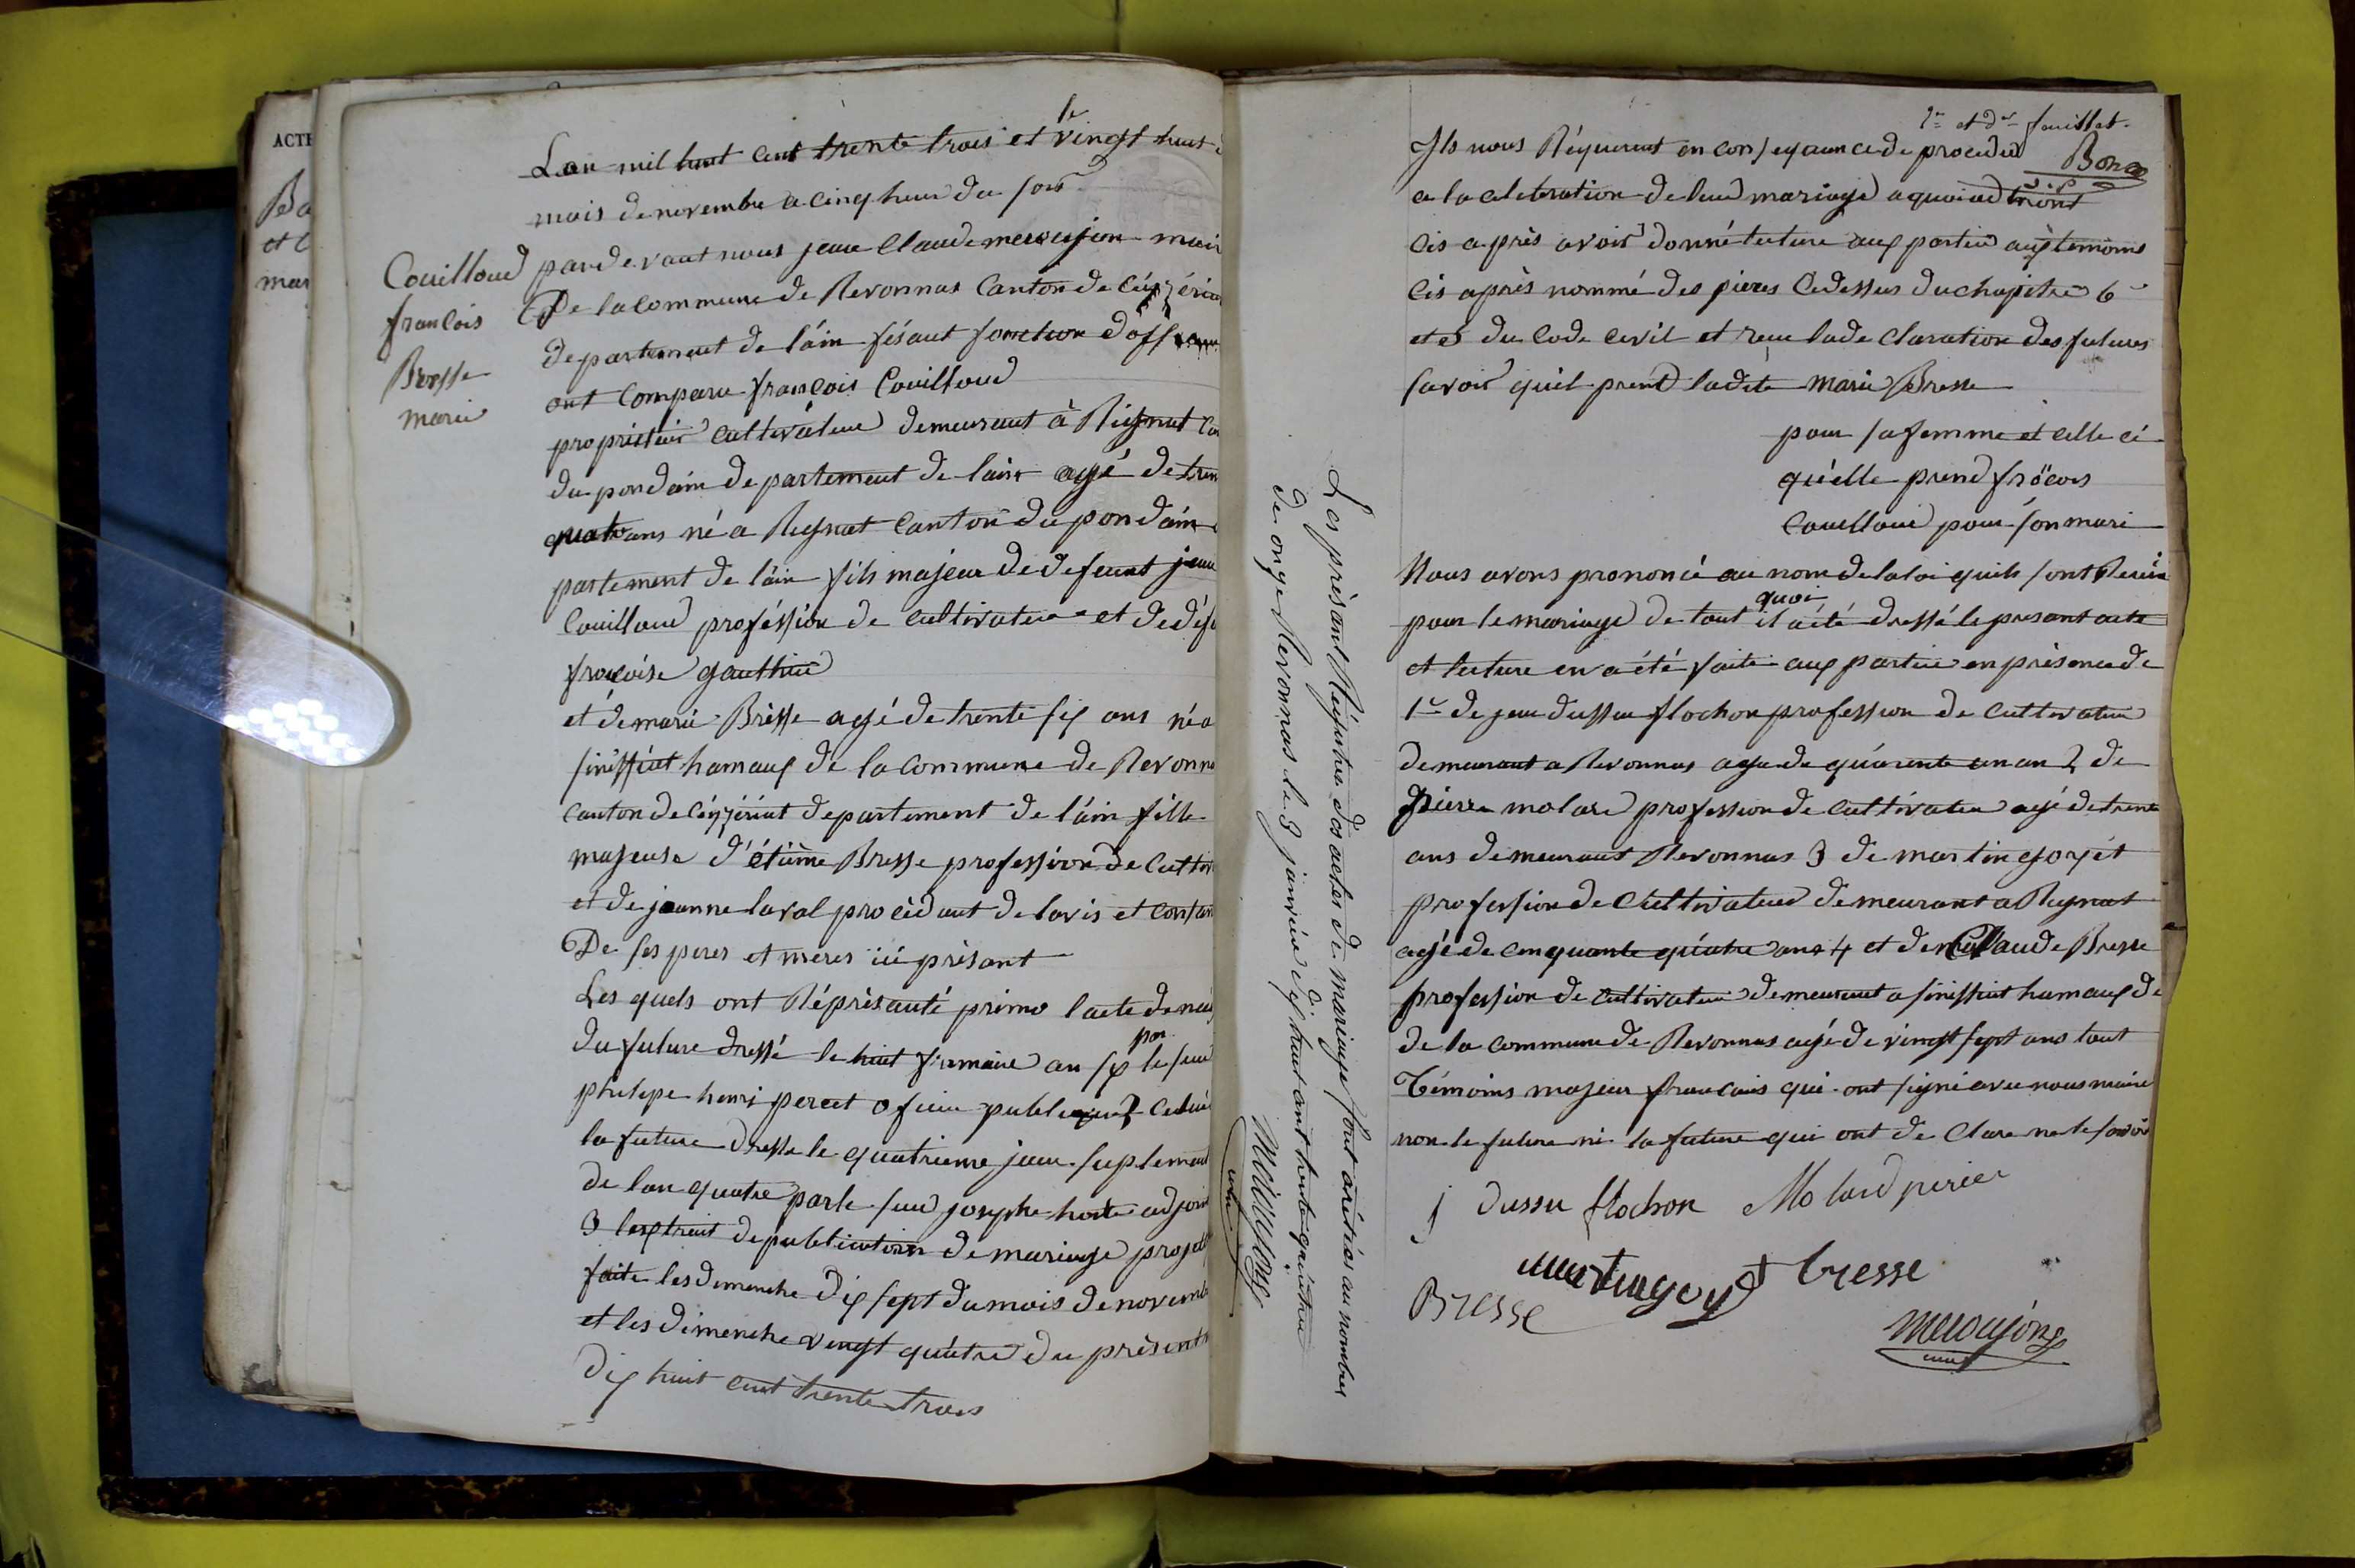 ACTE
Ba
et C
mar
Couilloud
francois
Bresse
marie
Lan mil huit cent trente trois et le vingt huit
mois de novembre a cinq heure du soir
pardevant nous jean Claude mercujon mair
De la commune de Revonnas Canton de Céyzéria
departement de l'áin fésant fonction d'off
ont Comparu francois Couilloud
propriétair cultivateur demeurant à Rignat Can
du pondain departement de lain agé de tren
quatr ans né a Rignat Canton du pondáin
partement de láin fils majeur de defeunt jean
Couilloud proféssion de cultivateur et de défe
francoise gauthier
et de marie Brèsse agé de trente six ans né a
sinissiat hamaux de la commune de Revonna
canton de Céyzériat departement de láin fille
majeure d'étiènne Bresse profession de Cultiv
et de jeanne laval procèdant de lavis et Consan
De ses peres et meres icé présant
Les quels ont Réprésanté primo lacte de nais
du future dressé le huit frimaire an six par le sieur
philipe henri perret oficier publique 2 celui
la future dressé le quatrieme jour suplement
de lan quatre par le sieur joseph adjoint
3 lextrait de publication de mariage projeté
faite les dimenche dix sept du mois de novemb
et les dimenche vingt quatre du présent
dix huit cent trente trois
Les présant Régistre des actes de mariage sont arétées au nombre
de onze Revonnas le 3 janvier dix huit cent trente quatre
Mercujon
maire
1er et der feuillet
Bona
Ils nous Réquerent en conseqaunce de proceder
a la celebration de leur mariage a quoi ad
cis après avoir donné lecture aux partie aux temoins
cis après nommé des pieces cidessus du chapitre 6
et 5 du code civil et reçu la de claration des futures
savoir quil prend ladite marie Bresse
pour sa femme et celle ci
qu'elle prend fröcois
Couilloud pour son mari
Nous avons prononcé au nom de la loi quils sont Reunis
pour le mariage de tout quoi il a été dressé le presant acte
et lecture en a été faite aux partie en présence de
1er de jean dussu flochon profession de cultivateur
demeurant a Revonnas agé de quarente un an 2 de
pierre molard profession de cultivateur agé de trente
ans demeurant Revonnas 3 de martin goyét
profession de Cultivateur demeurant a Rignat
agé de cinquante quatre ans 4 et de Claude Bresse
profession de cultivateur demeurant a sinissiat hamaux de
de la commune de Revonnas agé de vingt sept ans tout
Témoins majeur francais qui ont signé avec nous maire
non le future ni la future qui ont de Clare ne le savoir
j dussu flochon Molard perier
martin goyet bresse
Bresse
mercujon
maire